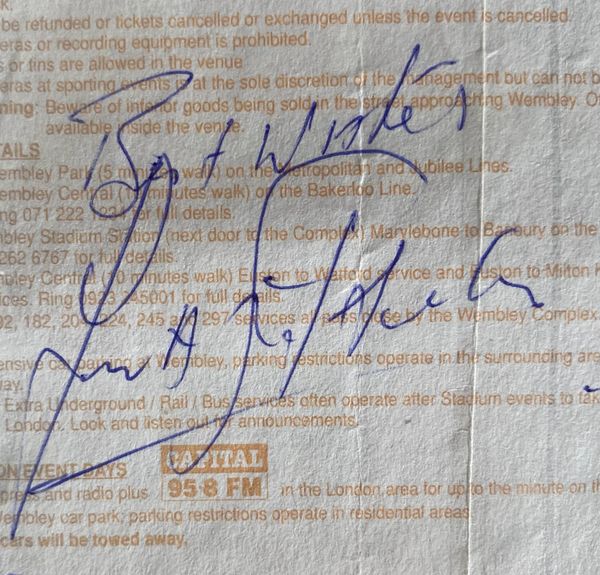 be refunded or tickets cancelled or exchanged unless the event is cancelled.
eras or recording equipment is prohibited.
s or tins are allowed in the venue
eras at sporting events at the sole discretion of the management but can not b
ning: Beware of inferior goods being sold in the street approaching Wembley. O
available inside the venue.
Best Wishes
TAILS
embley Park (5 minutes walk) on the Metropolitan and Jubilee Lines.
embley Central (10 minutes walk) on the Bakerloo Line.
ng 071 222 for full details.
bley Stadium Station (next door to the Complex) Marylebone to Banbury on the
262 6767 for full details.
bley Central (10 minutes walk) Euston to Watford service and Euston to Milton K
ices. Ring 0923 245001 for full details.
92, 182, 204, 224, 245 and 297 services all pass close by the Wembley Complex.
ensive car parking at Wembley, parking restrictions operate in the surrounding are
ay.
Extra Underground / Rail / Bus services often operate after Stadium events to tak
London. Look and listen out for announcements.
ON EVENT DAYS
press and radio plus CAPITAL 95·8 FM in the London area for up to the minute on th
Wembley car park, parking restrictions operate in residential areas
cars will be towed away.